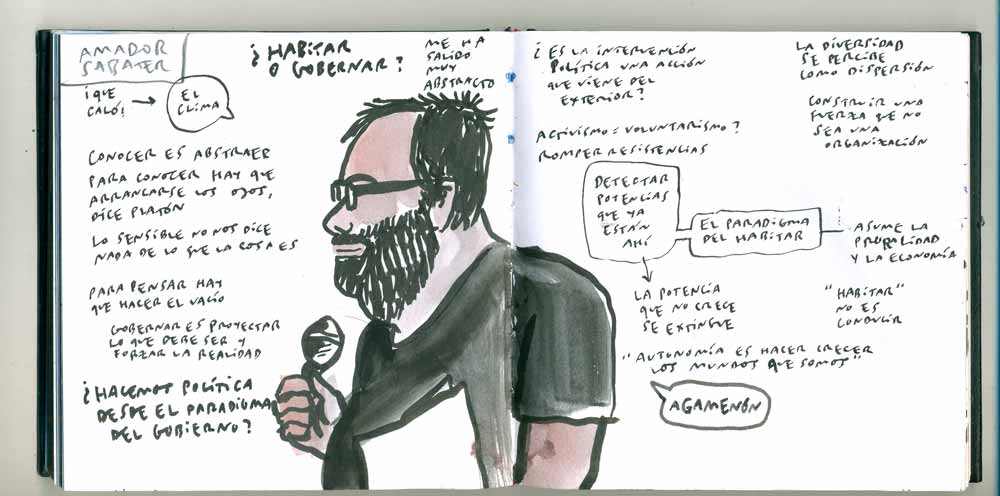 AMADOR
SABATER
¡QUE
CALÓ!
EL
CLIMA
¿HABITAR
O GOBERNAR?
ME HA
SALIDO
MUY
ABSTRACTO
CONOCER ES ABSTRAER
PARA CONOCER HAY QUE
ARRANCARSE LOS OJOS,
DICE PLATÓN
LO SENSIBLE NO NOS DICE
NADA DE LO QUE LA COSA ES
PARA PENSAR HAY
QUE HACER EL VACÍO
GOBERNAR ES PROYECTAR
LO QUE DEBE SER Y
FORZAR LA REALIDAD
¿HACEMOS POLÍTICA
DESDE EL PARADIGMA
DEL GOBIERNO?
¿ES LA INTERVENCIÓN
POLÍTICA UNA ACCIÓN
QUE VIENE DEL
EXTERIOR?
ACTIVISMO = VOLUNTARISMO?
ROMPER RESISTENCIAS
DETECTAR
POTENCIAS
QUE YA
ESTÁN
AHÍ
EL PARADIGMA
DEL HABITAR
LA DIVERSIDAD
SE PERCIBE
COMO DISPERSIÓN
CONSTRUIR UNA
FUERZA QUE NO
SEA UNA
ORGANIZACIÓN
ASUME LA
PLURALIDAD
Y LA ECONOMÍA
LA POTENCIA
QUE NO CRECE
SE EXTINGUE
"HABITAR"
NO ES
CONDUCIR
"AUTONOMÍA ES HACER CRECER
LOS MUNDOS QUE SOMOS"
AGAMENÓN